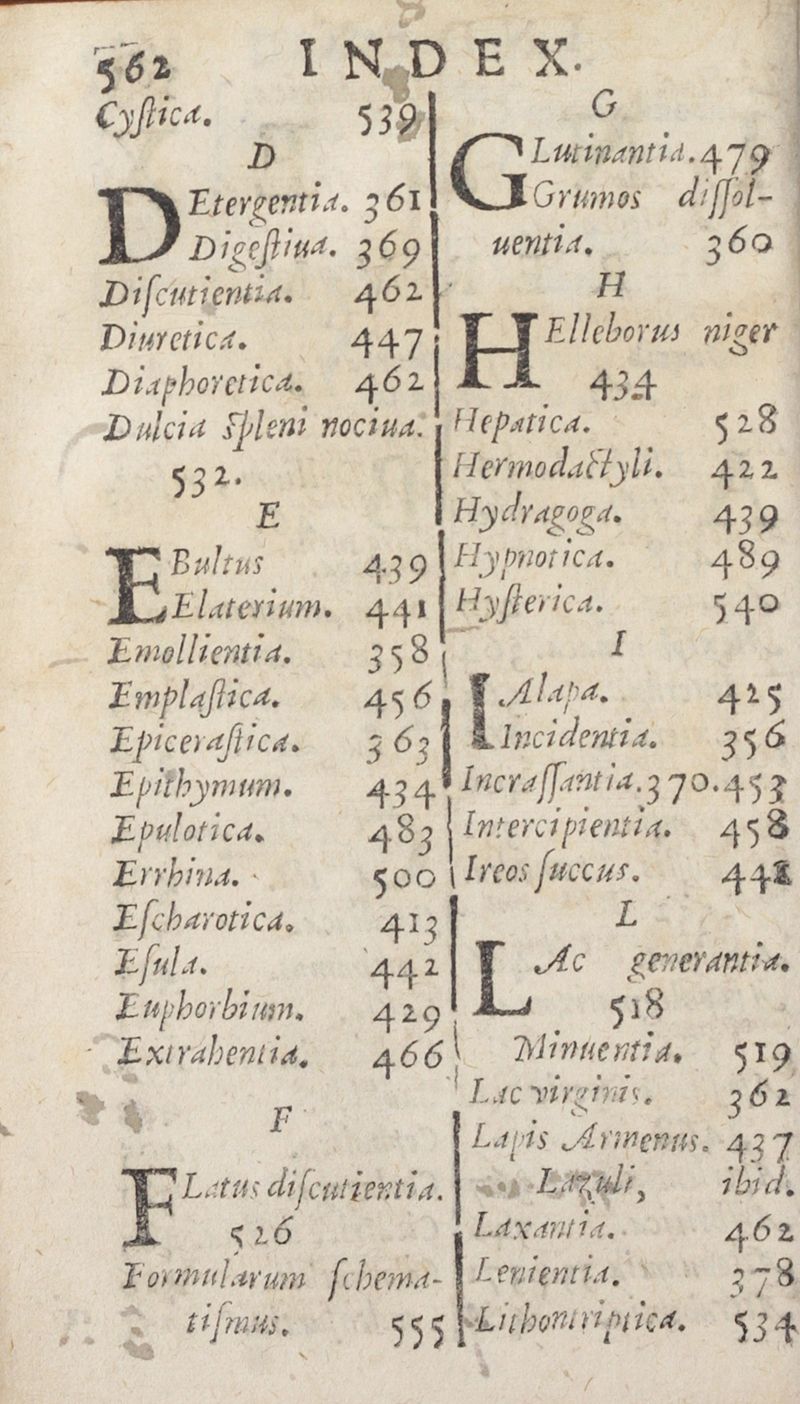 562 INDEX.
Cyſtica. 539
D
DEtergentia. 361
Digeſtiua. 369
Diſcutientia. 462
Diuretica. 447
Diaphoretica. 462
Dulcia ſpleni nociua.
532.
E
EBultus 439
Elaterium. 441
Emollientia. 358
Emplaſtica. 456
Epiceraſtica. 363
Epithymum. 434
Epulotica. 483
Errhina. 500
Eſcharotica. 413
Eſula. 442
Euphorbium. 429
Extrahentia. 466
F
FLatus diſcutientia.
526
Formularum ſchema-
tiſmus. 555
G
GLutinantia. 479
Grumos diſſol-
uentia. 360
H
HElleborus niger
434
Hepatica. 528
Hermodactyli. 422
Hydragoga. 439
Hypnotica. 489
Hyſterica. 540
I
IAlapa. 425
Incidentia. 356
Incraſſantia. 370. 453
Intercipientia. 458
Ireos ſuccus.
L
LAc generantia.
518
Minuentia. 519
Lac virginis. 362
Lapis Armenus. 437
Lazuli, ibid.
Laxantia. 462
Lenientia. 378
Lithontriptica. 534